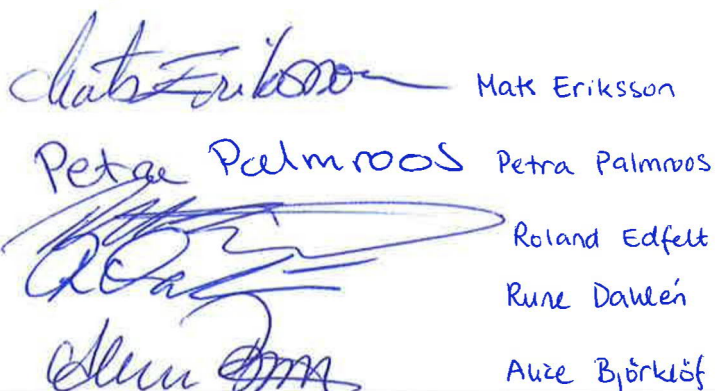 Mats Eriksson Mats Eriksson
Petra Palmroos Petra Palmroos
Roland Edfelt
Rune Dahlén
Alice Björklöf